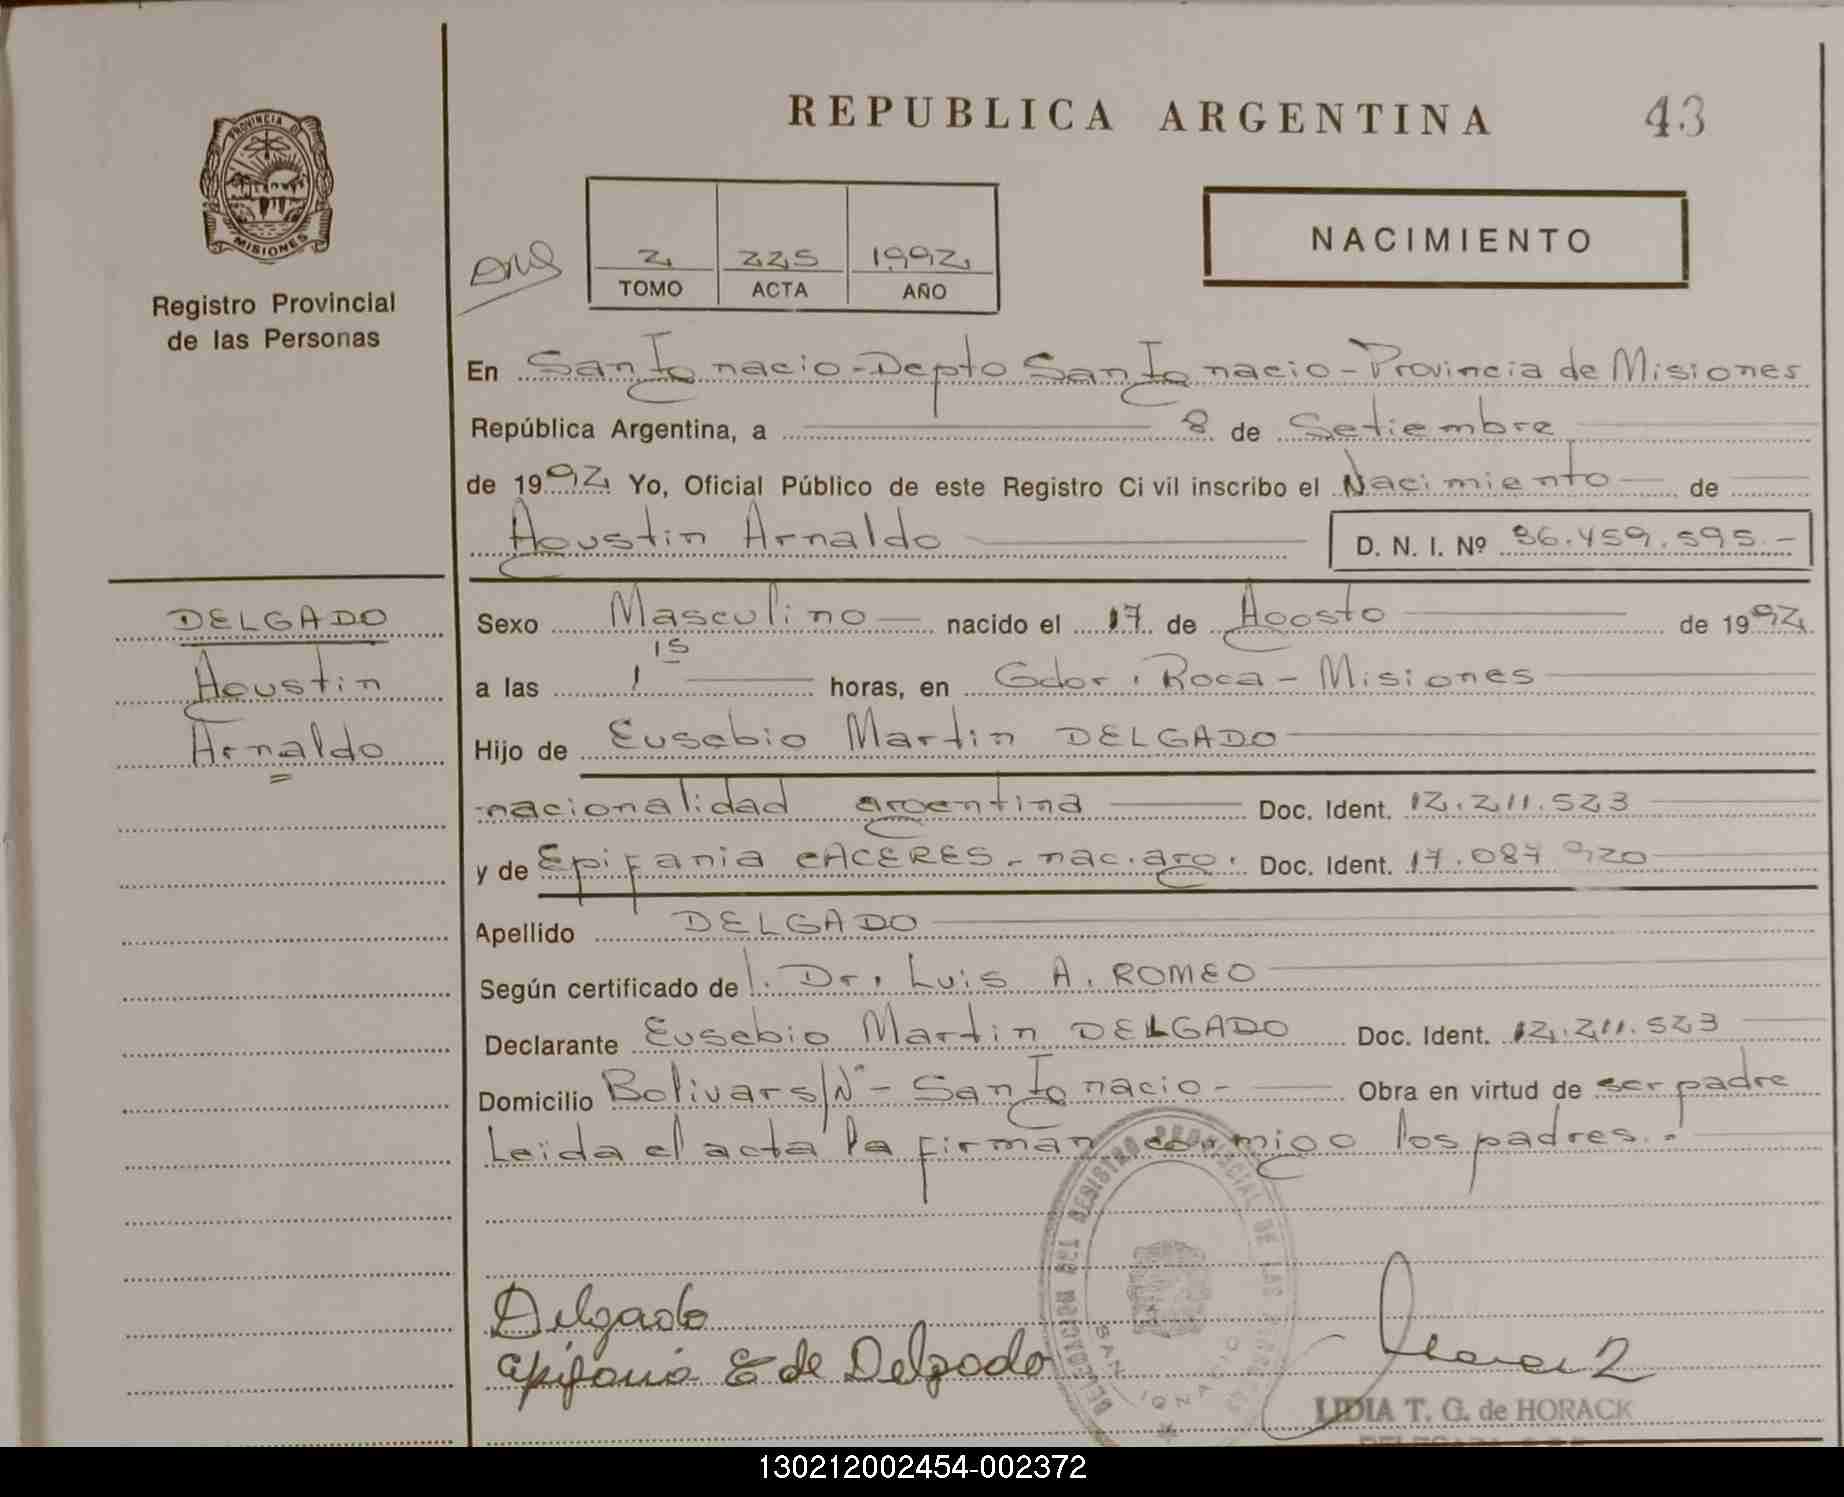 REPUBLICA ARGENTINA
43
PROVINCIA DE
MISIONES
Registro Provincial
de las Personas
2 225 1992
TOMO ACTA AÑO
NACIMIENTO
En San Ignacio - Depto San Ignacio - Provincia de Misiones
República Argentina, a 8 de Setiembre
de 1992 Yo, Oficial Público de este Registro Civil inscribo el Nacimiento de
Agustin Arnaldo D. N. I. Nº 36.459.595.-
DELGADO
Agustin
Arnaldo
Sexo Masculino nacido el 17 de Agosto de 1992
a las 1 15 horas, en Gdor. Roca - Misiones
Hijo de Eusebio Martin DELGADO
nacionalidad argentina Doc. Ident. 12.211.523
y de Epifania CACERES - nac. arg. Doc. Ident. 17.087.920
Apellido DELGADO
Según certificado del. Dr. Luis A. ROMEO
Declarante Eusebio Martin DELGADO Doc. Ident. 12.211.523
Domicilio Bolivar s/Nº - San Ignacio - Obra en virtud de ser padre
Leida el acta la firman conmigo los padres.-
Delgado
Epifania C de Delgado
REGISTRO PROVINCIAL DE LAS
SAN IGNACIO
LIDIA T. G. de HORACK
130212002454-002372